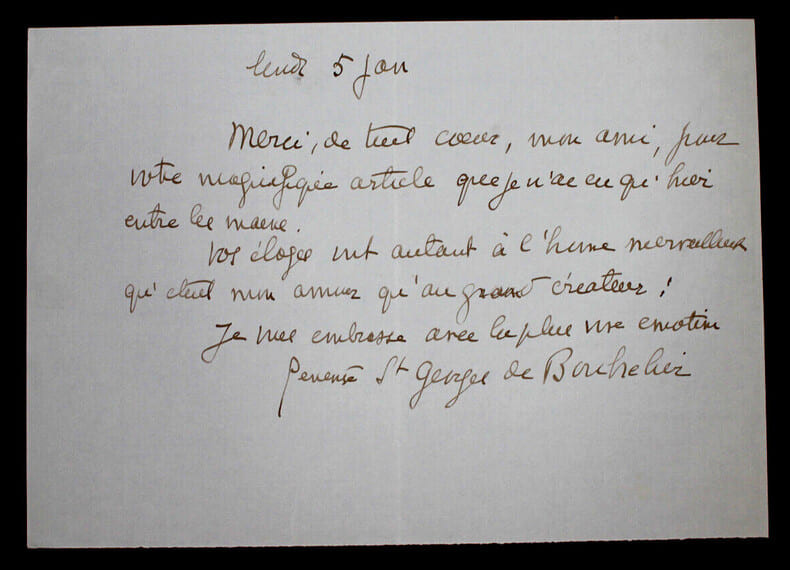 lundi 5 Jan
Merci, de tout cœur, mon ami, pour
votre magnifique article que je n'ai eu qu'hier
entre les mains.
Vos éloges vont autant à l'homme merveilleux
qu'était mon amour qu'au grand créateur !
Je vous embrasse avec la plus vive émotion
St Georges de Bouhelier